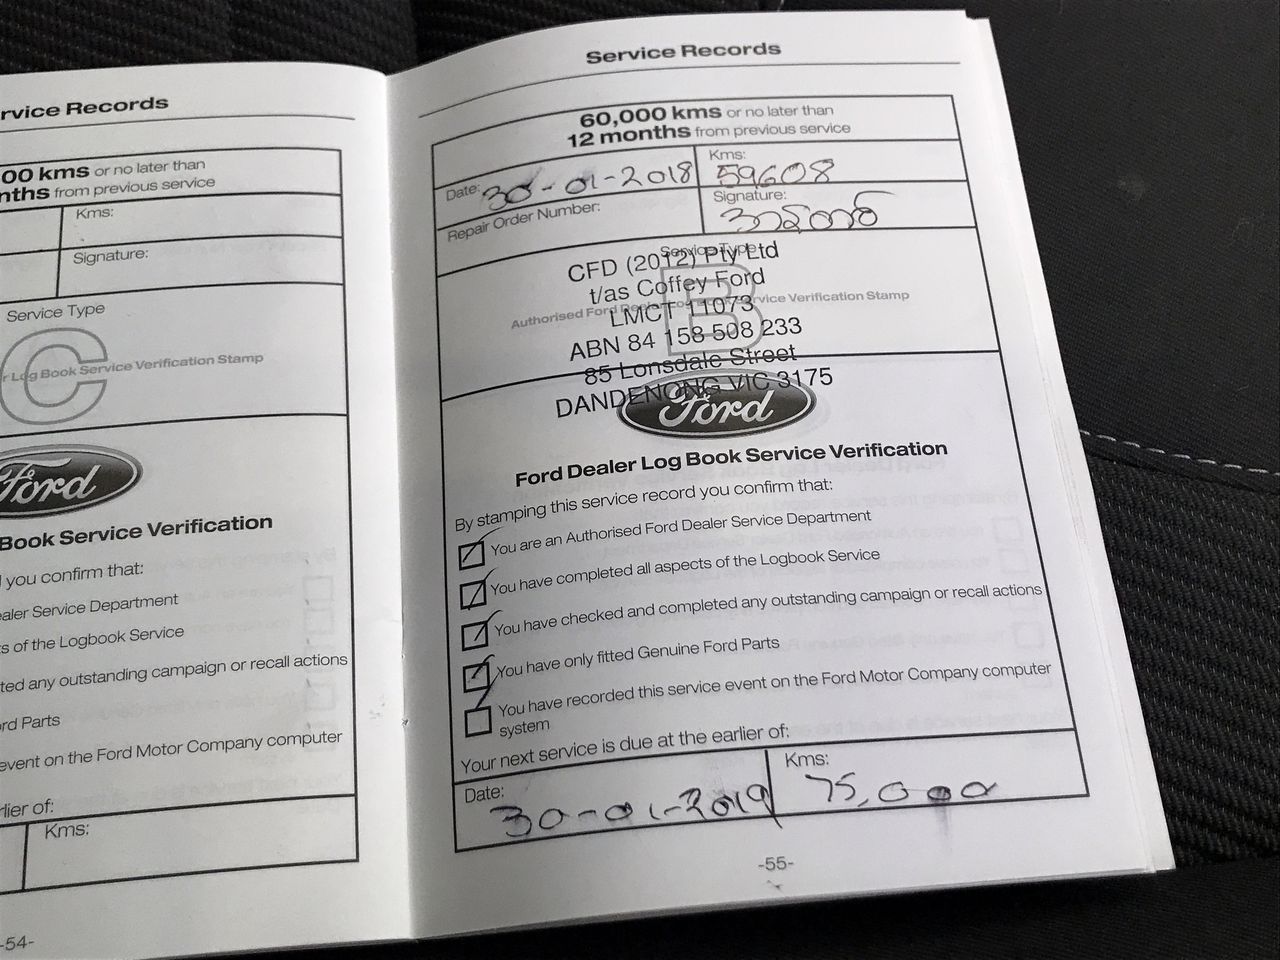 rvice Records
00 kms or no later than
nths from previous service
Kms:
Signature:
Service Type
C
r Log Book Service Verification Stamp
Ford
Book Service Verification
you confirm that:
ealer Service Department
s of the Logbook Service
ted any outstanding campaign or recall actions
rd Parts
event on the Ford Motor Company computer
rlier of:
Kms:
-54-
Service Records
60,000 kms or no later than
12 months from previous service
Date: 30-01-2018
Kms: 59608
Repair Order Number:
Signature:
Service Type
B
CFD (2012) Pty Ltd
t/as Coffey Ford
Authorised Ford Dealer Log Book Service Verification Stamp
LMCT 11073
ABN 84 158 508 233
85 Lonsdale Street
DANDENONG VIC 3175
Ford
Ford Dealer Log Book Service Verification
By stamping this service record you confirm that:
You are an Authorised Ford Dealer Service Department
You have completed all aspects of the Logbook Service
You have checked and completed any outstanding campaign or recall actions
You have only fitted Genuine Ford Parts
You have recorded this service event on the Ford Motor Company computer
system
Your next service is due at the earlier of:
Date: 30-01-2019
Kms: 75,000
-55-